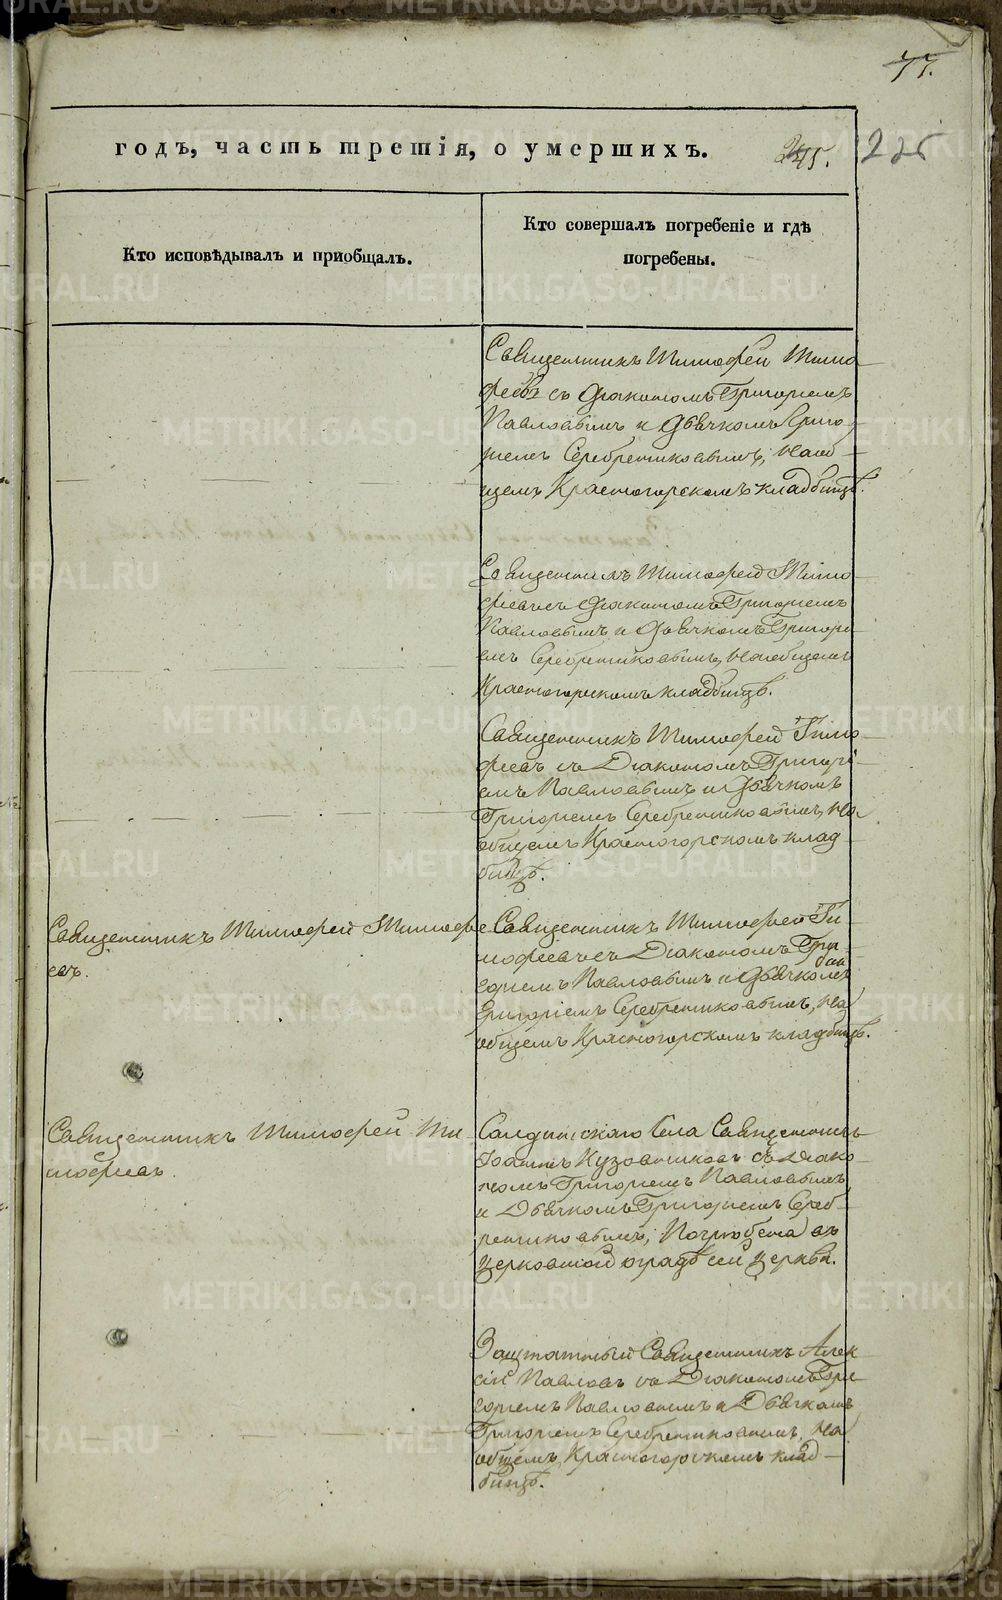 77.
годъ, часть третія, о умершихъ.
245.
225
Кто исповѣдывалъ и приобщалъ.
Кто совершалъ погребеніе и гдѣ
погребены.
Священникъ Тимофей Тимо
феевъ съ Діакономъ Григоріемъ
Павловымъ и Дьячкомъ Григо
ріемъ Серебренниковымъ, на об
щемъ Красногорскомъ кладбищѣ.
Священникъ Тимофей Тимо
феевъ съ Діакономъ Григоріемъ
Павловымъ и Дьячкомъ Григорі
емъ Серебренниковымъ, на общемъ
Красногорскомъ кладбищѣ.
Священникъ Тимофей Тимо
феевъ съ Діакономъ Григорі
емъ Павловымъ и Дьячкомъ
Григоріемъ Серебренниковымъ, на
общемъ Красногорскомъ клад
бищѣ.
Священникъ Тимофей Тимофе
евъ.
Священникъ Тимофей Ти
мофеевъ съ Діакономъ Гри
горіемъ Павловымъ и Дьячкомъ
Григоріемъ Серебренниковымъ, на
общемъ Красногорскомъ кладбищѣ.
Священникъ Тимофей Ти
мофеевъ.
Салдинскаго Села Священникъ
Іоаннъ Кузовниковъ съ Діако
номъ Григоріемъ Павловымъ
и Дьячкомъ Григоріемъ Сереб
ренниковымъ, Погребена въ
церковной оградѣ сей церкви.
Заштатный Священникъ Алек
сій Павловъ съ Діакономъ Гри
горіемъ Павловымъ и Дьячкомъ
Григоріемъ Серебренниковымъ, на
общемъ Красногорскомъ клад
бищѣ.
METRIKI.GASO-URAL.RU